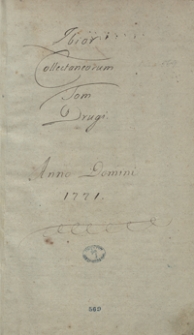 Zbiór
Collectaneorum
Tom
Drugi.
Anno Domini
1771.
589